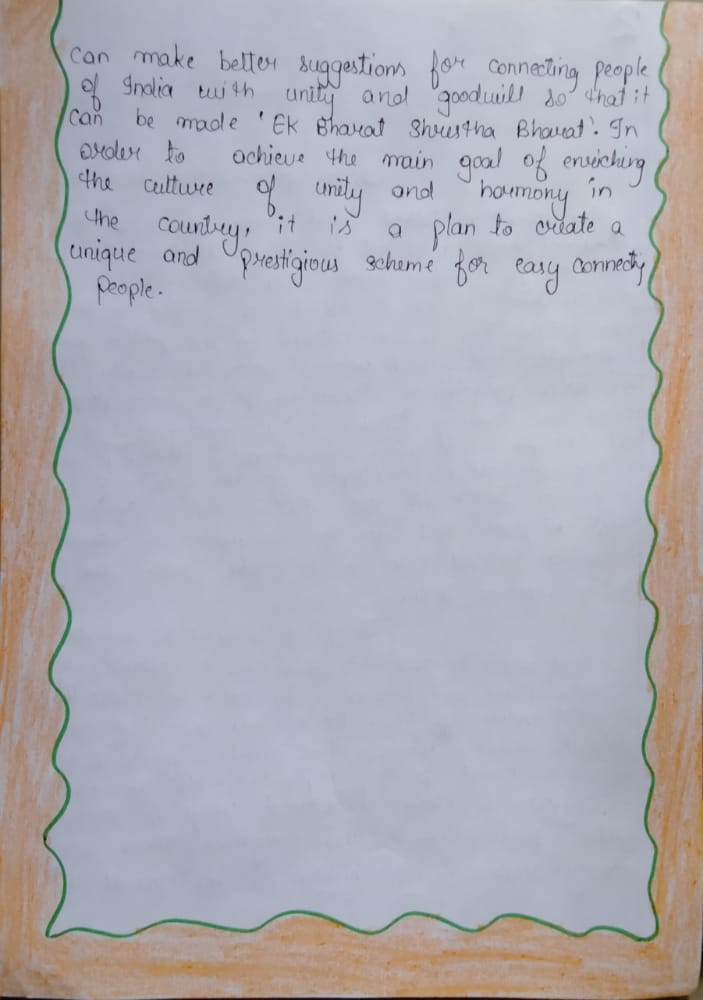 can make better suggestions for connecting people
of India with unity and goodwill so that it
can be made 'Ek Bharat Shrestha Bharat'. In
order to achieve the main goal of enriching
the culture of unity and harmony in
the country, it is a plan to create a
unique and prestigious scheme for easy
people.